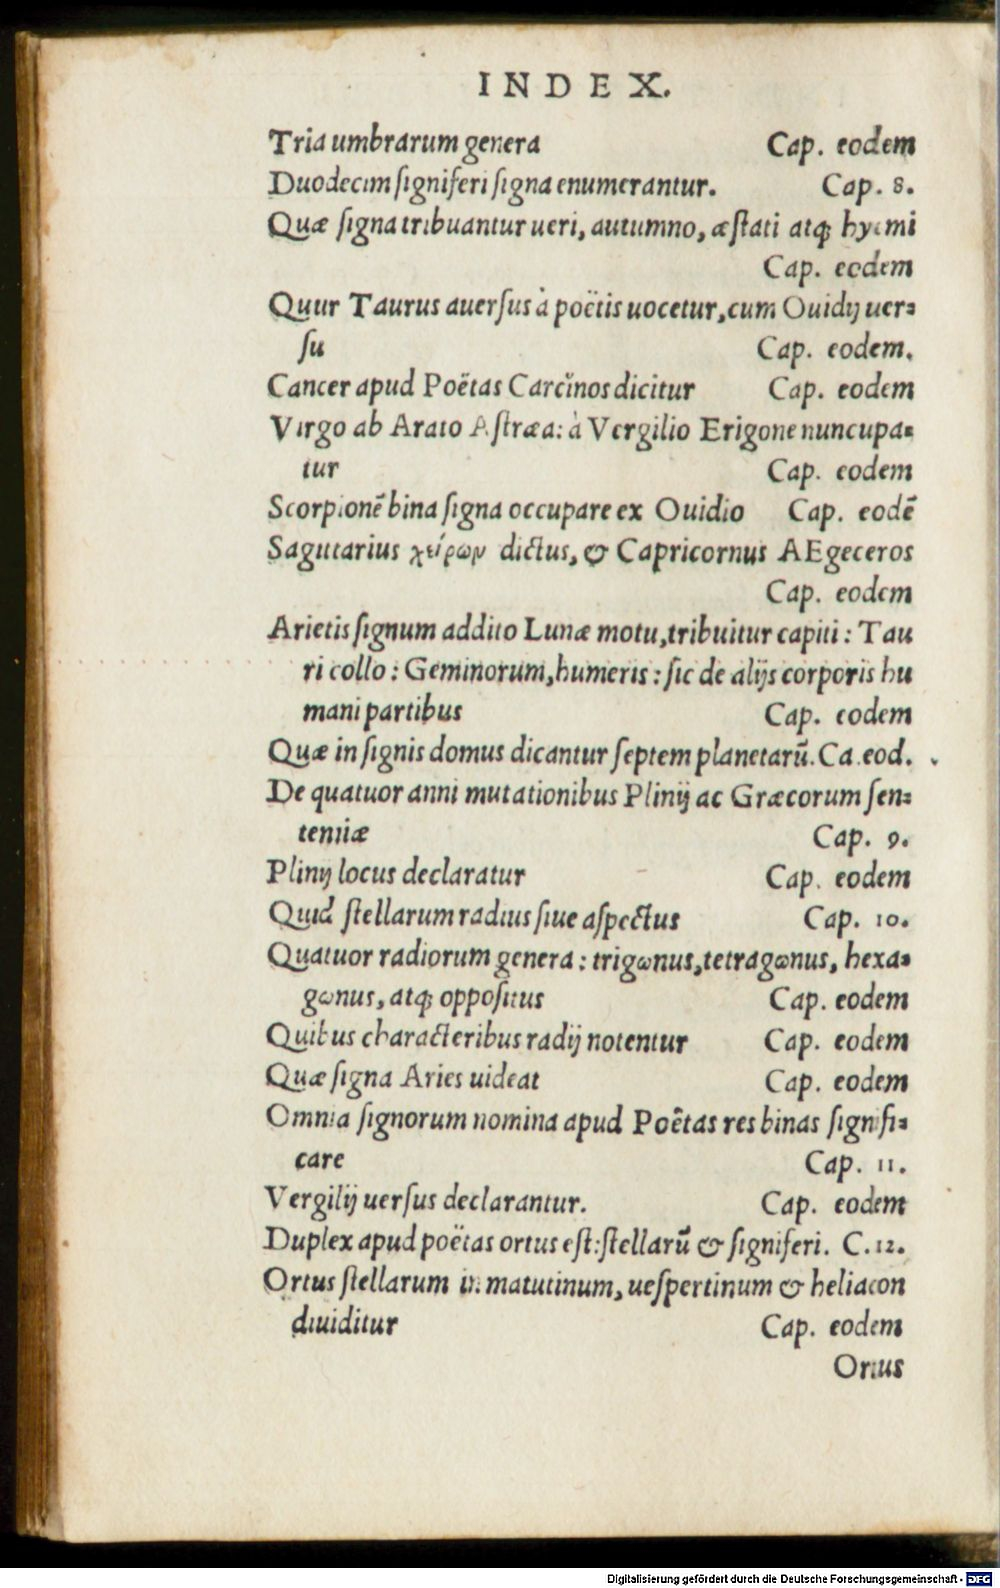 INDEX.
Tria umbrarum genera Cap. eodem
Duodecim ſigniferi ſigna enumerantur. Cap. 8.
Quæ ſigna tribuantur ueri, autumno, æſtati atq; hyemi
Cap. eodem
Quur Taurus auerſus à poëtis uocetur, cum Ouidij uer=
ſu Cap. eodem.
Cancer apud Poëtas Carcĭnos dicitur Cap. eodem
Virgo ab Arato Aſtræa: à Vergilio Erigone nuncupa=
tur Cap. eodem
Scorpionē bina ſigna occupare ex Ouidio Cap. eodē
Sagittarius χείρων dictus, & Capricornus AEgeceros
Cap. eodem
Arietis ſignum addito Lunæ motu, tribuitur capiti: Tau
ri collo: Geminorum, humeris: ſic de alijs corporis hu
mani partibus Cap. eodem
Quæ in ſignis domus dicantur ſeptem planetarū. Ca.eod.
De quatuor anni mutationibus Plinij ac Græcorum ſen=
tentiæ Cap. 9.
Plinij locus declaratur Cap. eodem
Quid ſtellarum radius ſiue aſpectus Cap. 10.
Quatuor radiorum genera: trigωnus, tetragωnus, hexa=
gωnus, atq; oppoſitus Cap. eodem
Quibus characteribus radij notentur Cap. eodem
Quæ ſigna Aries uideat Cap. eodem
Omnia ſignorum nomina apud Poëtas res binas ſignifi=
care Cap. 11.
Vergilij uerſus declarantur. Cap. eodem
Duplex apud poëtas ortus eſt: ſtellarū & ſigniferi. C. 12.
Ortus ſtellarum in matutinum, ueſpertinum & heliacon
diuiditur Cap. eodem
Ortus
Digitalisierung gefördert durch die Deutsche Forschungsgemeinschaft - DFG